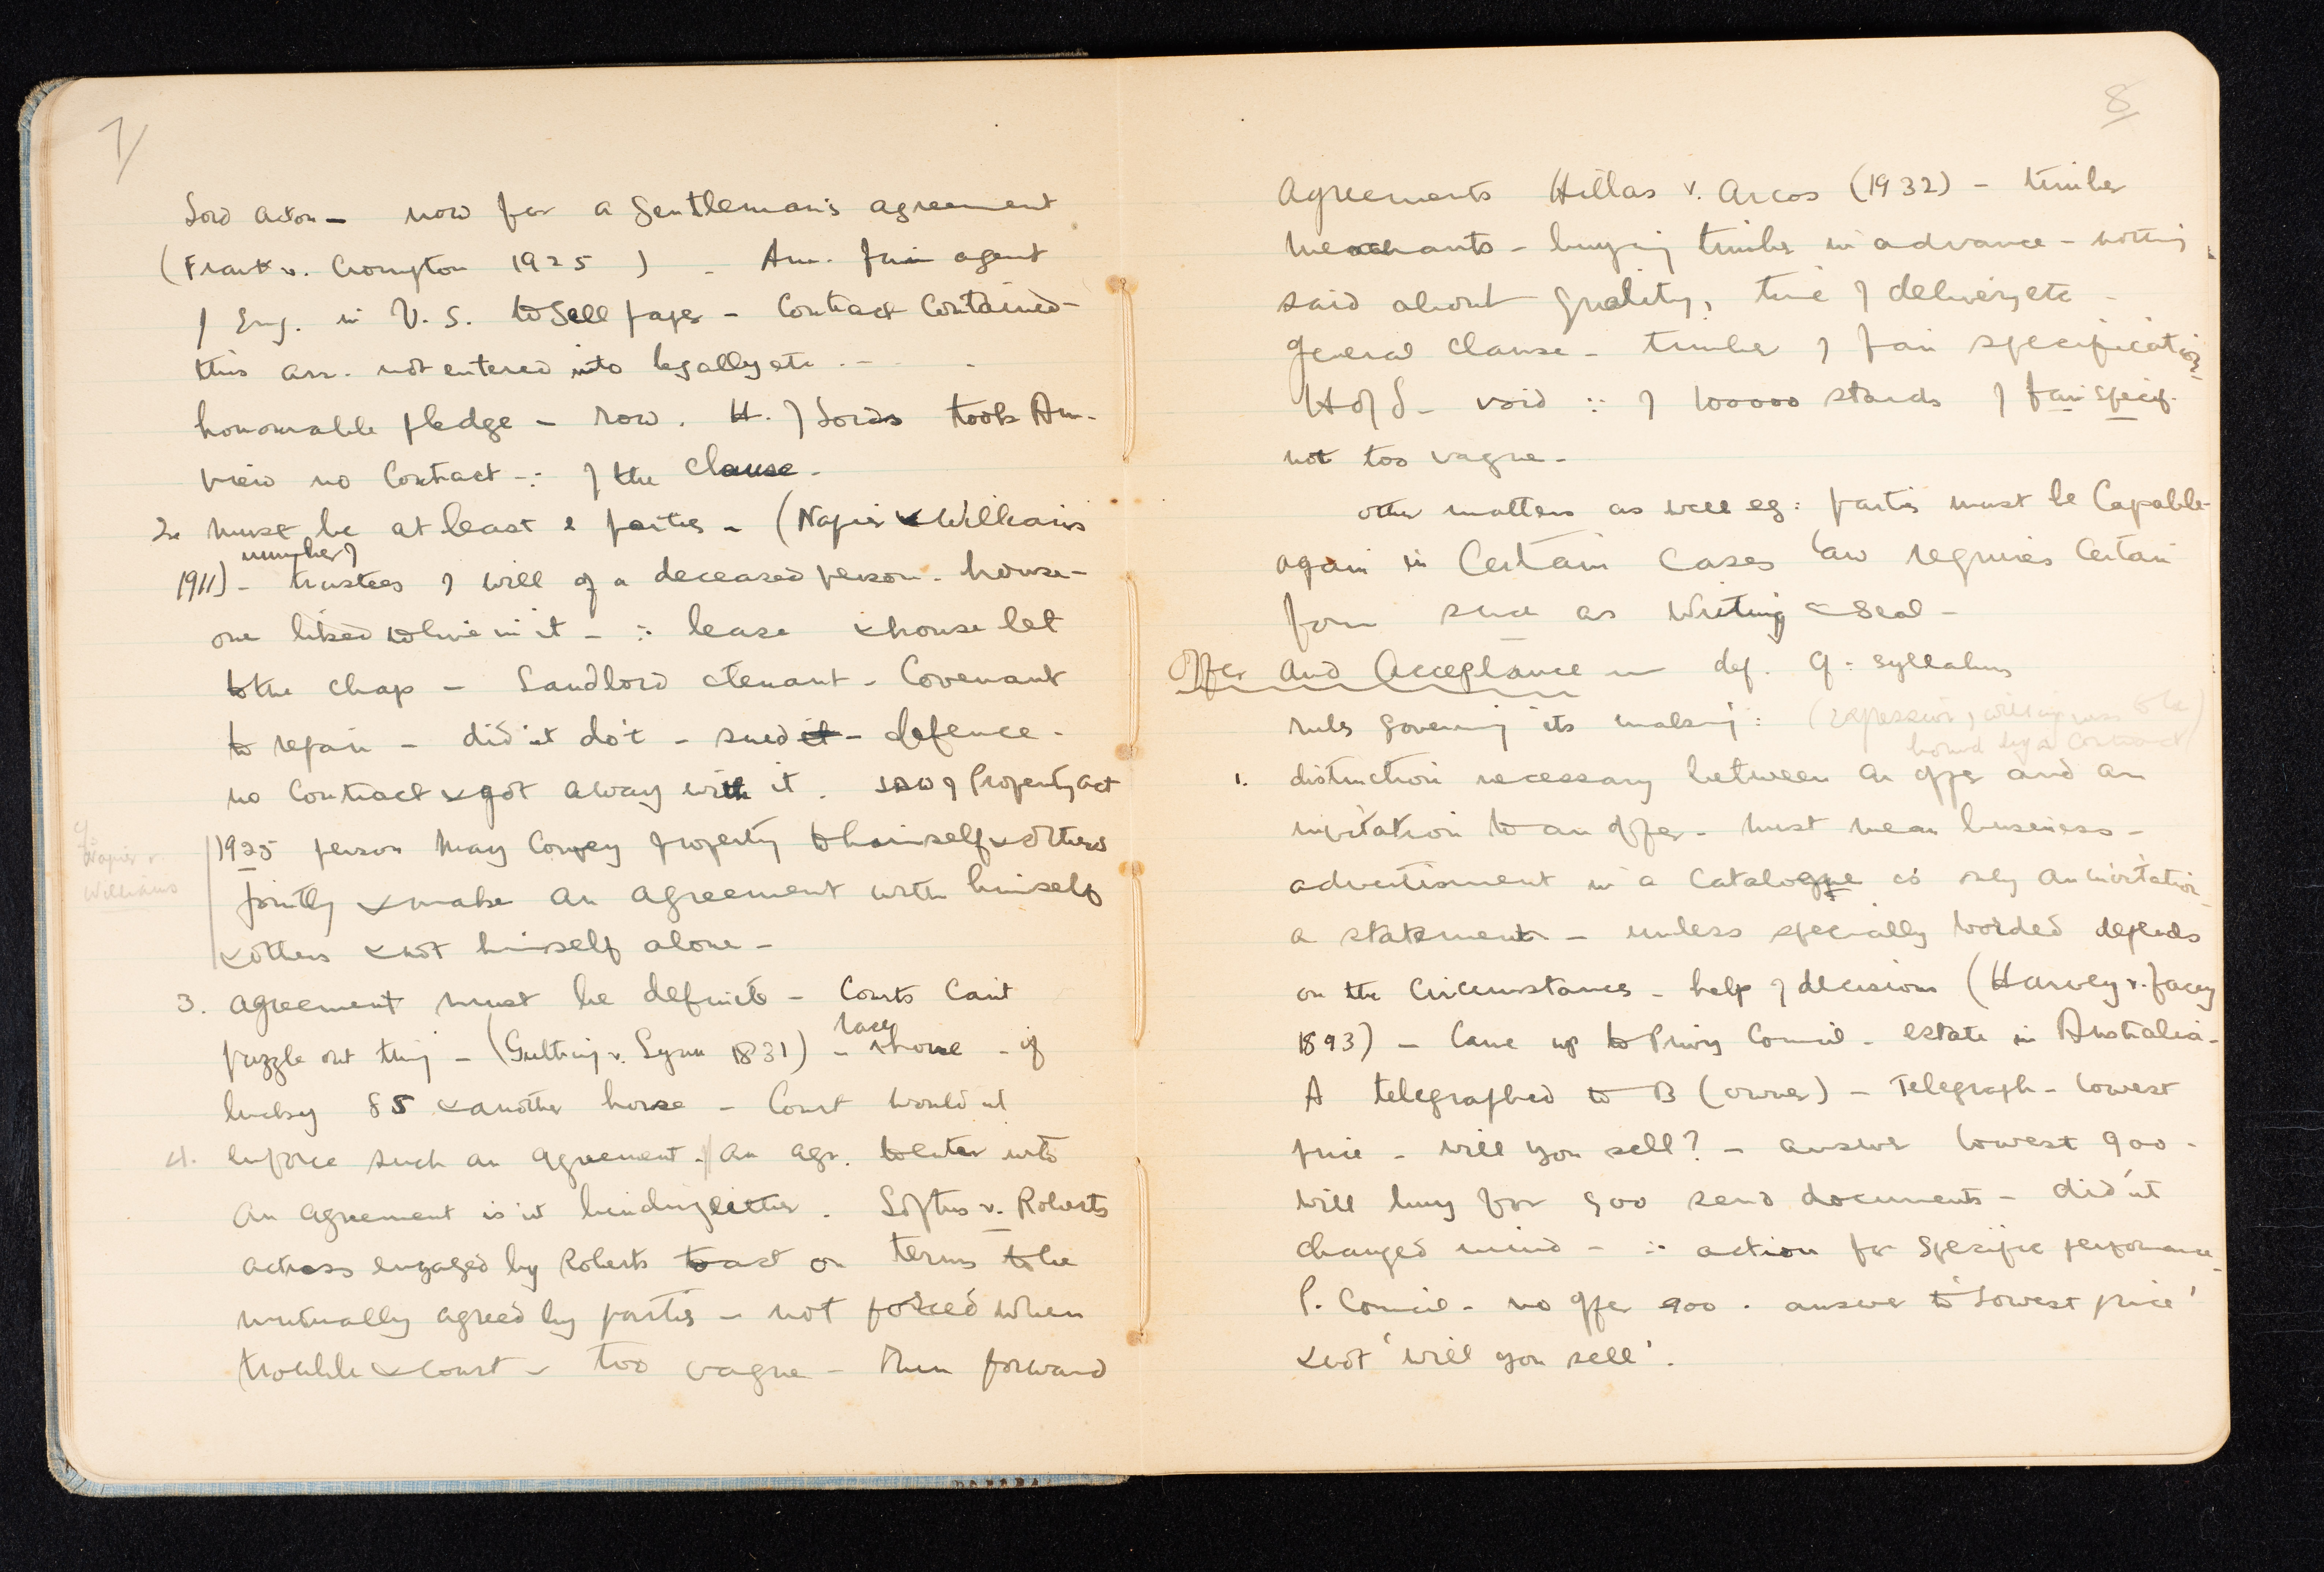 7/
Lord Acton - now for a Gentleman's agreement
(Frank v. Crompton 1925) - Am. firm agent
of Eng. in U.S. to sell paper - Contract Contained -
this arr. not entered into legally etc. -
honourable pledge - row. H. of Lords took Am.
view no Contract ∵ of the clause -
2. must be at least 2 parties - (Napier v Williams
number of
1911) - trustees of will of a deceased person - house -
one liked to live in it - ∴ lease & house let
to the chap - Landlord & tenant - Covenant
to repair - did'nt do't - sued it - defence -
no Contract & got away with it. of Property act
cf Napier v. Williams
1925 person may Convey property to himself & others
jointly & make an agreement with himself
& others & not himself alone -
3. agreement must be definite - Courts Can't
puzzle out thing - (Gulting v. Lynn 1831) - race horse - if
lucky £5 & another horse - Court would nt
4. enforce such an agreement. // An agr. to enter into
an agreement is nt binding either. Loftus v. Roberts
actress engaged by Roberts to act on terms to be
mutually agreed by parties - not forced when
trouble & court - too vague - Then forward
8
agreements Hillas v. Arcos (1932) - timber
merchants - buying timber in advance - nothing
said about quality, time of delivery etc -
general clause - timber of fair specification
H of L - void ∵ of 100000 stands of fair specif.
not too vague -
other matters as well eg: parties must be Capable -
again in Certain Cases law requires Certain
form such as Writing & Seal -
Offer and Acceptance - def. cf. syllabus
rules governing its making: (expression of willingness to be
bound by a Contract)
1. distinction necessary between an offer and an
invitation to an offer - must mean business -
advertisment in a Catalogue is only an invitation -
a statement - unless specially worded depends
on the Circumstances - help of decisions (Harvey v. Facey
1893) - Came up to Privy Council - estate in Australia -
A telegraphed to B (owner) - Telegraph - lowest
price - will you sell? - answer lowest 900 -
will buy for 900 send documents - did'nt
changed mind - ∴ action for specific performance -
P. Council - no offer 900. answer to 'Lowest price'
& not 'will you sell'.